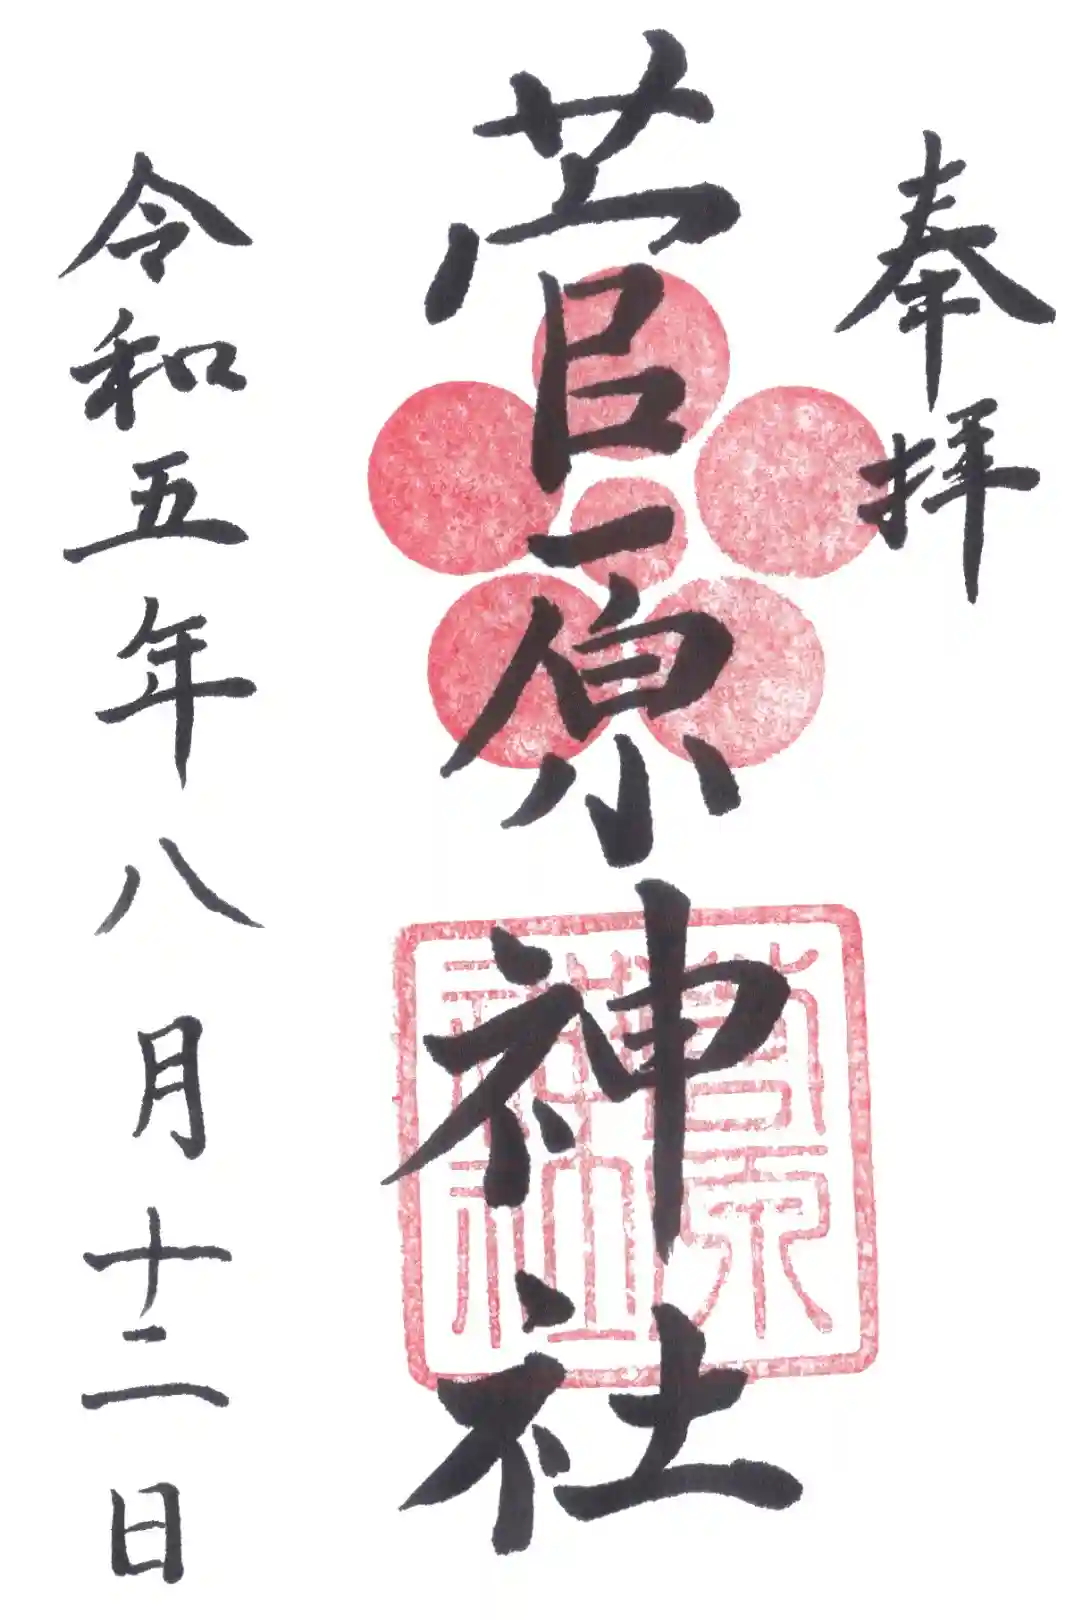 奉拝
菅原神社
菅原
神社
令和五年八月十二日